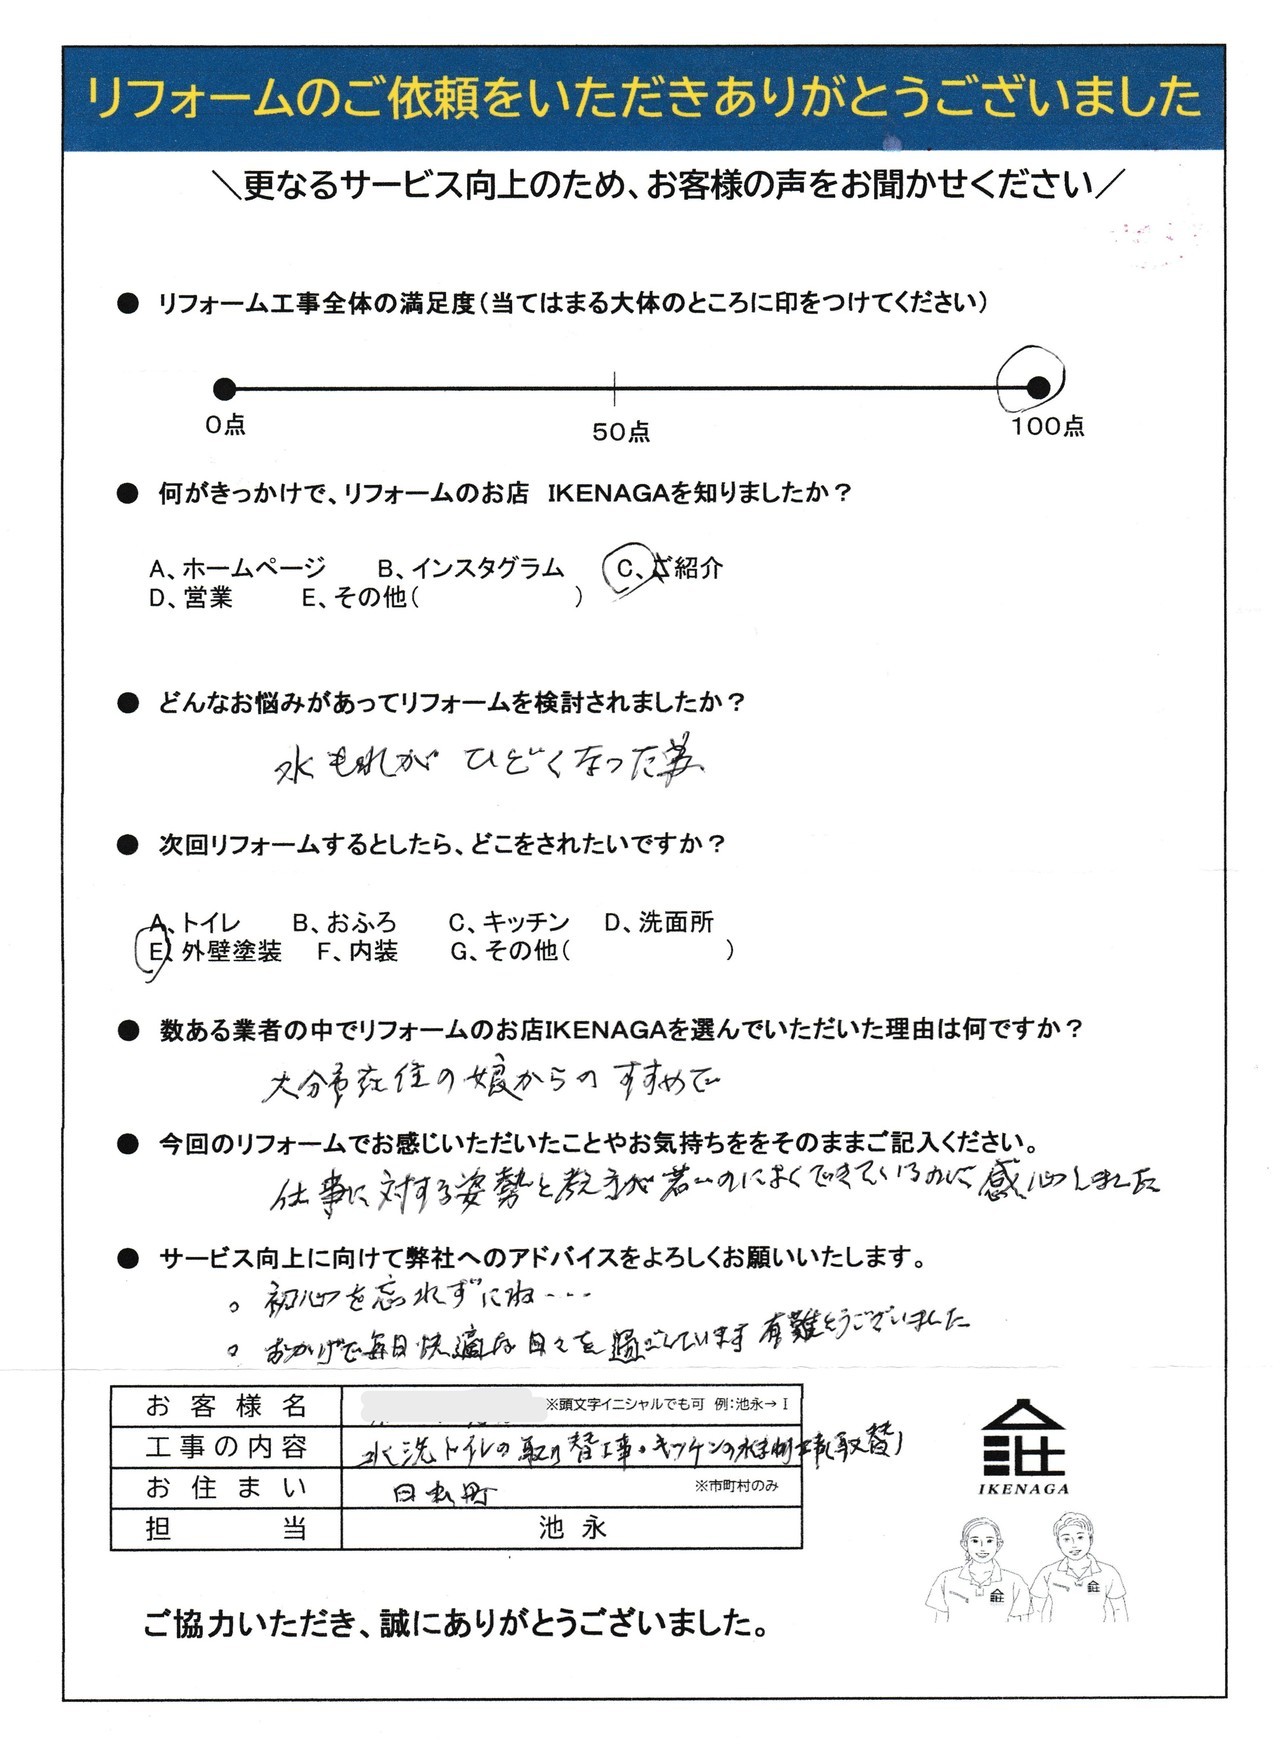 リフォームのご依頼をいただきありがとうございました
＼更なるサービス向上のため、お客様の声をお聞かせください／
● リフォーム工事全体の満足度（当てはまる大体のところに印をつけてください）
0点 50点 100点
● 何がきっかけで、リフォームのお店 IKENAGAを知りましたか？
A、ホームページ B、インスタグラム C、ご紹介
D、営業 E、その他（ ）
● どんなお悩みがあってリフォームを検討されましたか？
水もれが ひどくなった事
● 次回リフォームするとしたら、どこをされたいですか？
A、トイレ B、おふろ C、キッチン D、洗面所
E、外壁塗装 F、内装 G、その他（ ）
● 数ある業者の中でリフォームのお店IKENAGAを選んでいただいた理由は何ですか？
大分市在住の娘からの すすめで
● 今回のリフォームでお感じいただいたことやお気持ちををそのままご記入ください。
仕事に対する姿勢と教育が若いのによくできているのに感心しました
● サービス向上に向けて弊社へのアドバイスをよろしくお願いいたします。
。初心を忘れずにね・・・
。おかげで毎日快適な日々を過ごしています 有難とうございました
お客様名 ※頭文字イニシャルでも可 例：池永→I
工事の内容 水洗トイレの取り替工事・キッチンの水栓 取替
お住まい 日出町 ※市町村のみ
担当 池永
IKENAGA
ご協力いただき、誠にありがとうございました。